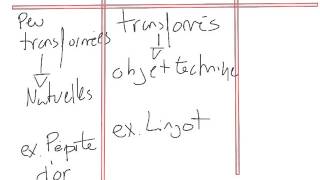 Peu
transformées
Naturelles
ex. Pépite
d'or
transformés
objet technique
ex. Lingot